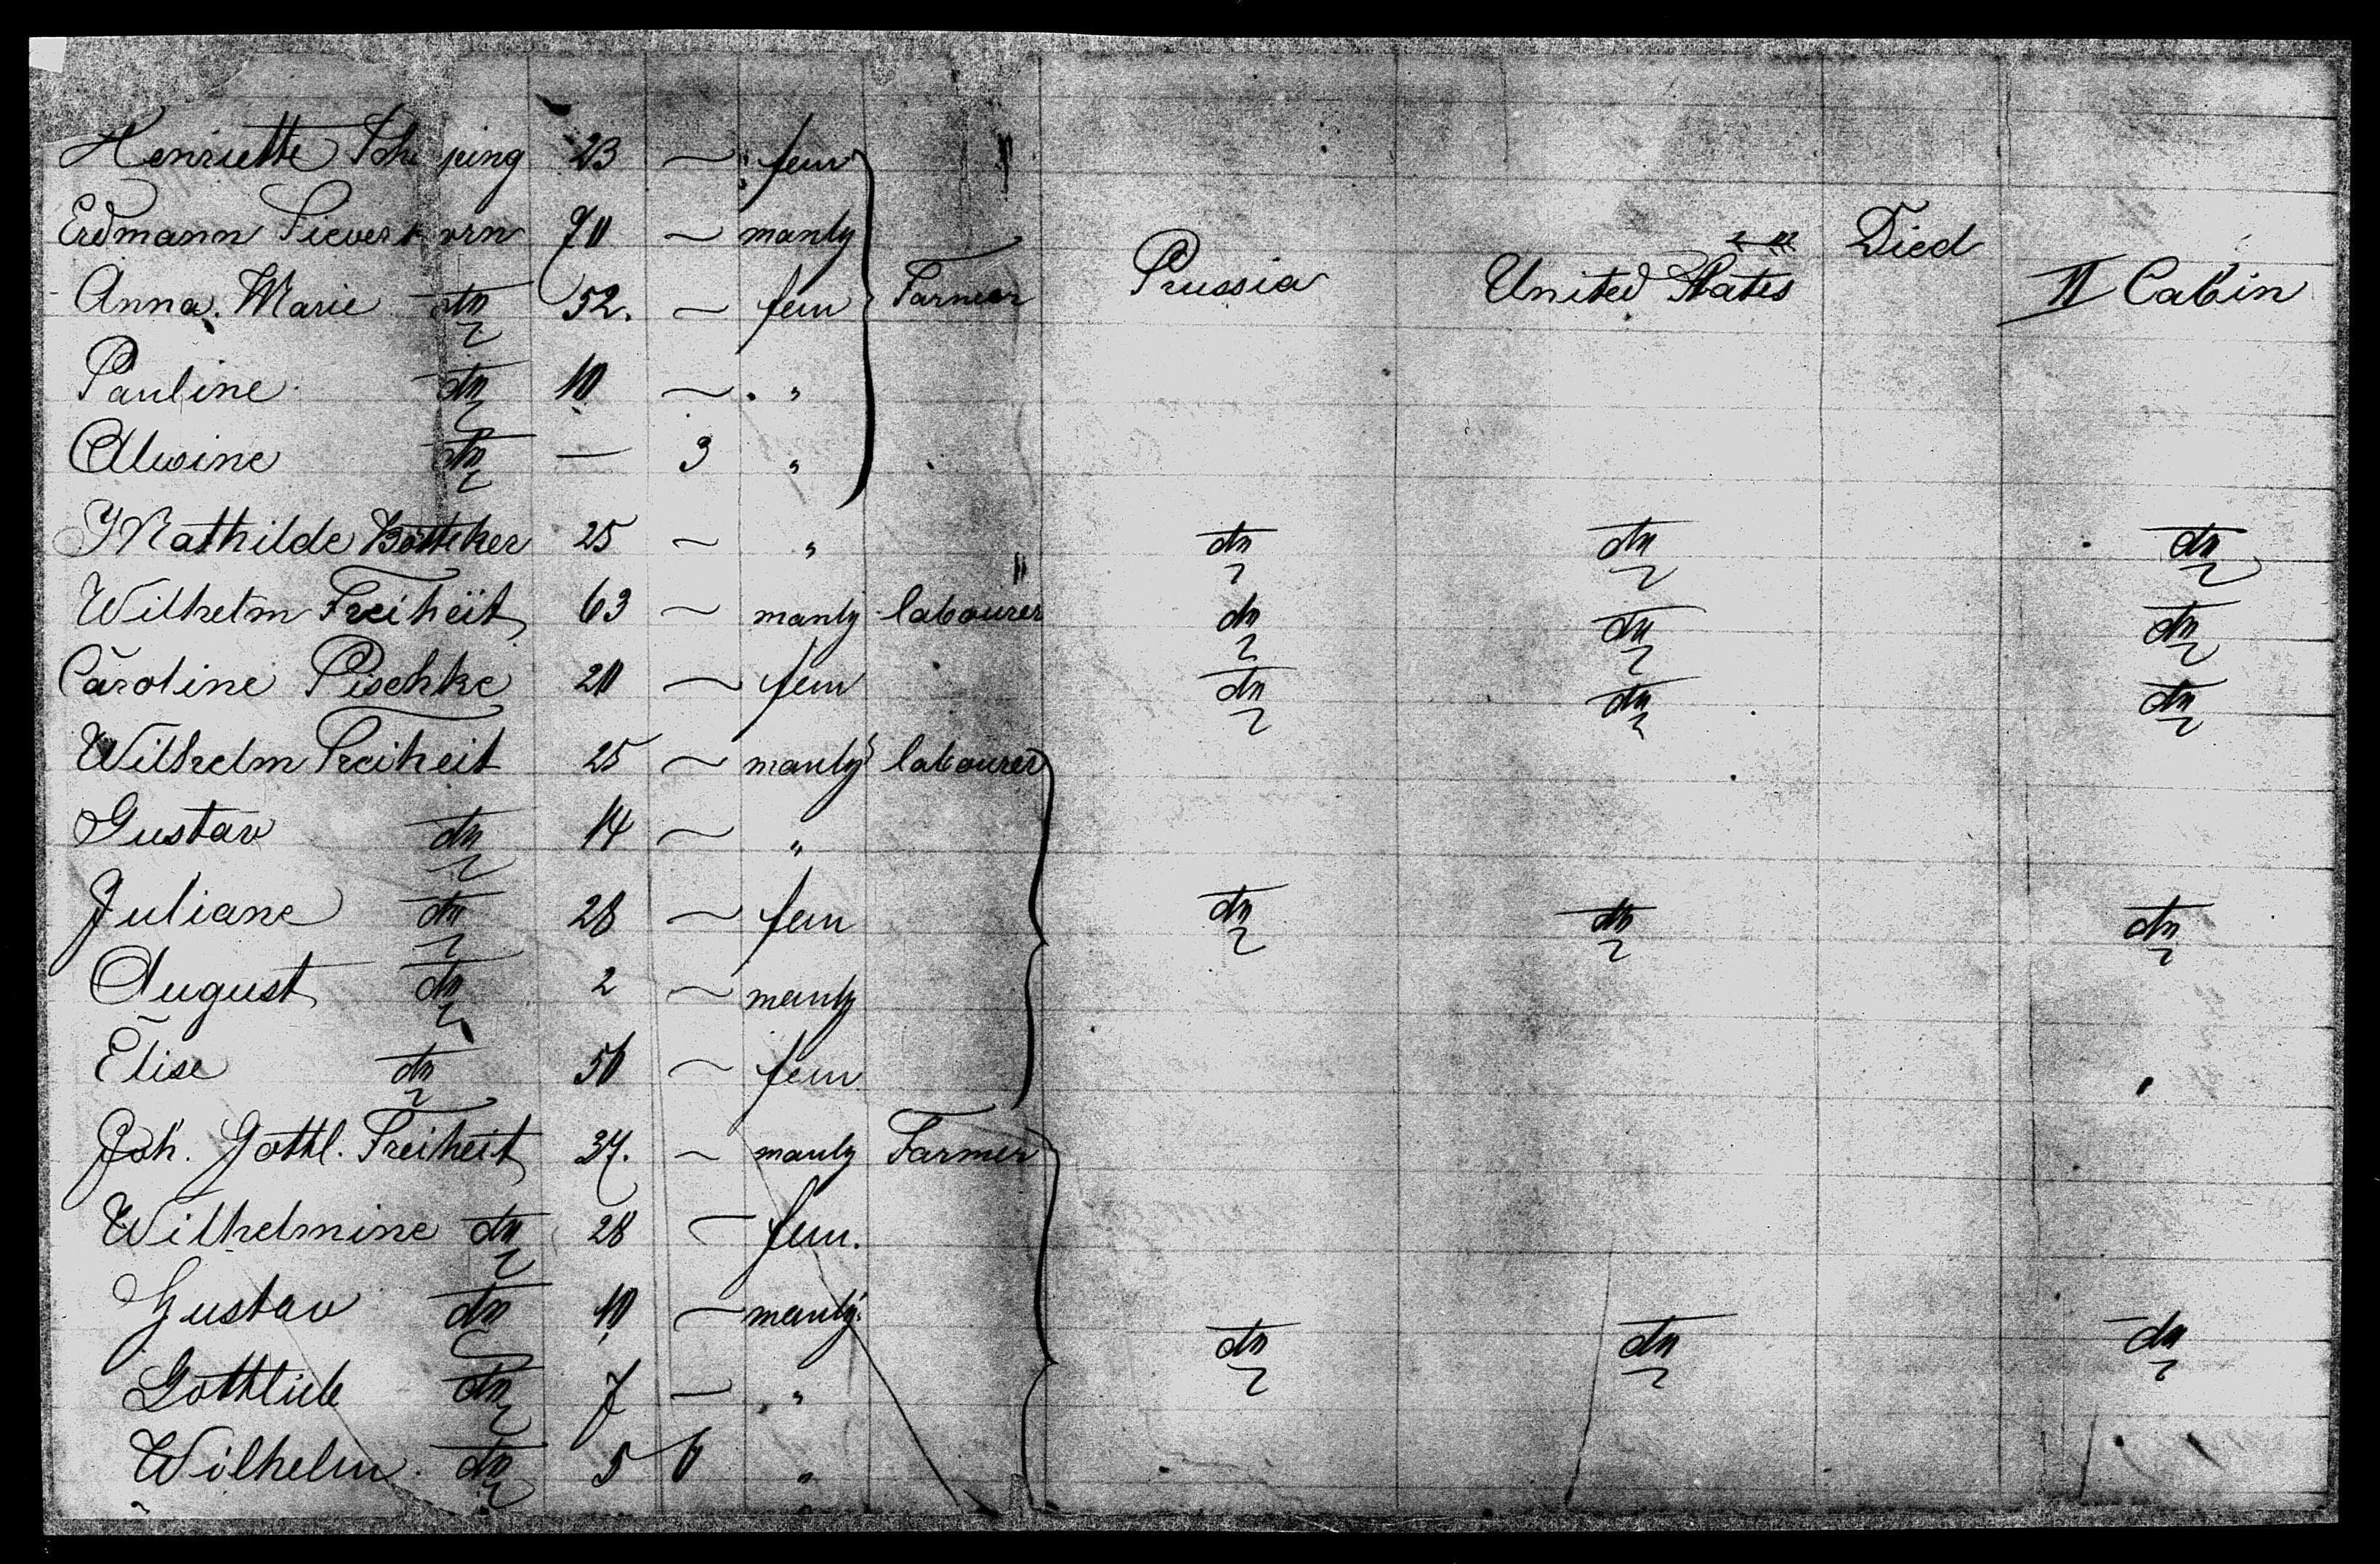 Henriette Sch ping 23 — fem
Erdmann Sieverkorn 70 — manly Died
Anna Marie do 52. — fem Farmer Prussia United States II Cabin
Pauline do 10 — "
Alwine do — 3 "
Mathilde Bötteker 25 — " do do do
Wilhelm Freiheit 63 — manly labourer do do do
Caroline Pischke 20 — fem do do do
Wilhelm Freiheit 25 — manly labourer
Gustav do 14 — "
Juliane do 28 — fem do do do
August do 2 — manly
Elise do 50 — fem
Joh. Gottl. Freiheit 37. — manly Farmer
Wilhelmine do 28 — fem.
Gustav do 10 — manly
Gottlieb do 7 — " do do do
Wilhelm do 5 6 "